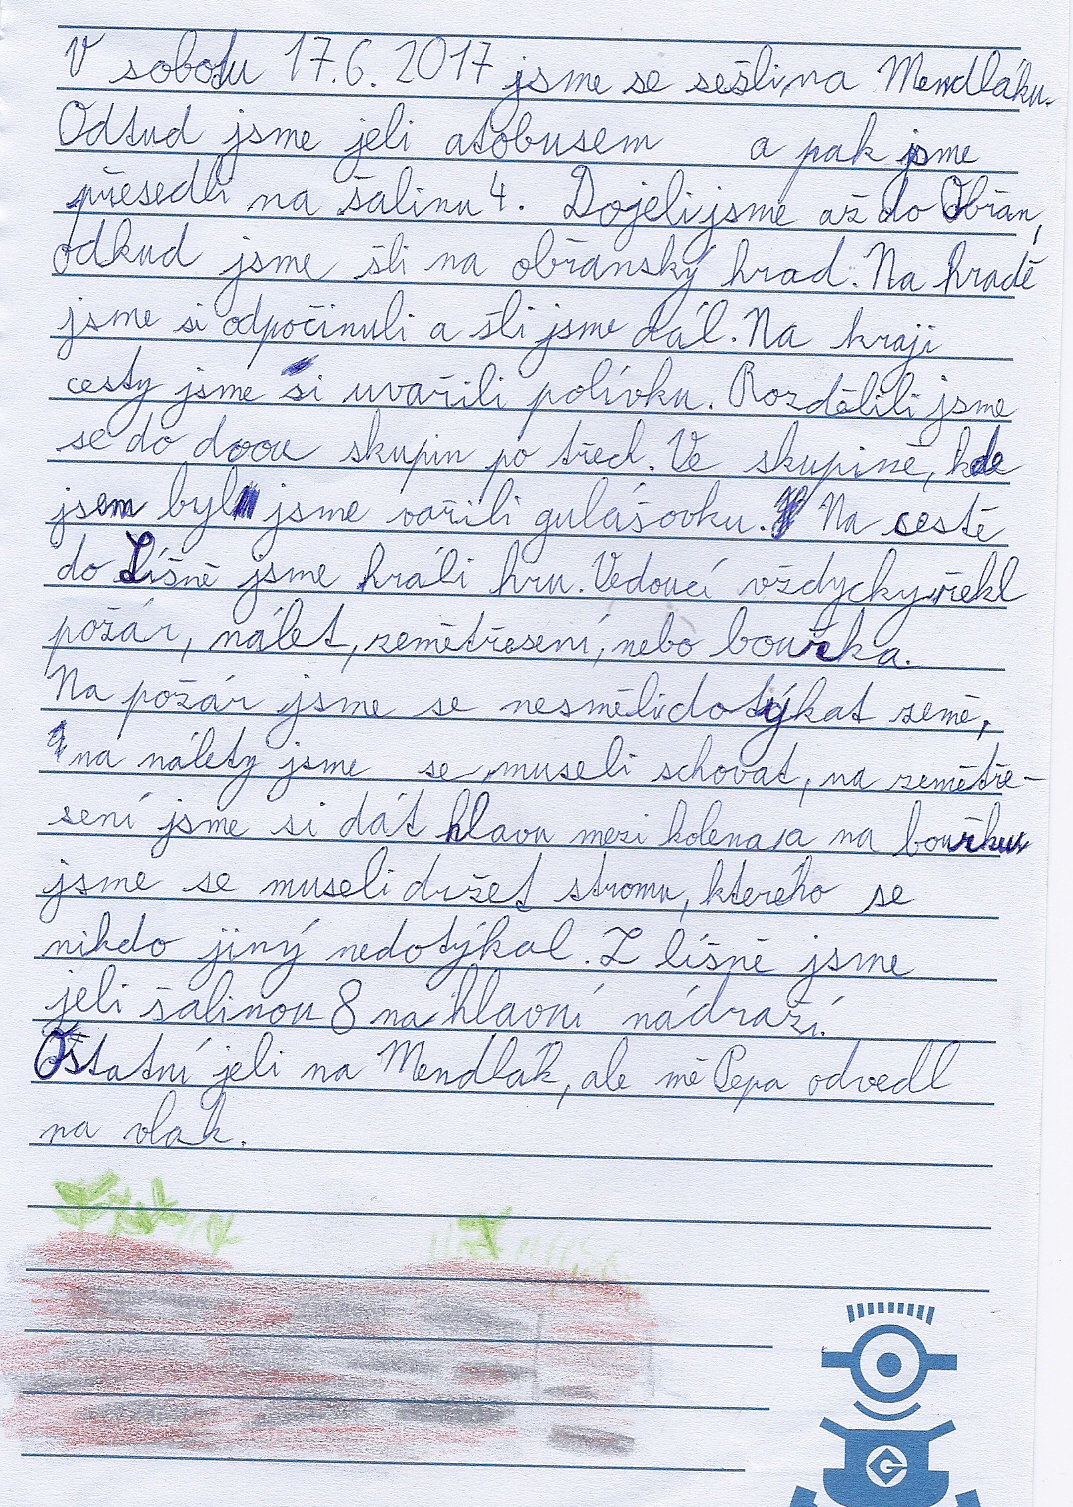 V sobotu 17.6. 2017 jsme se sešli na Mendláku.
Odtud jsme jeli atobusem a pak jsme
přesedli na šalinu 4. Dojeli jsme až do Obřan,
odkud jsme šli na obřanský hrad. Na hradě
jsme si odpočinuli a šli jsme dál. Na kraji
cesty jsme si uvařili polívku. Rozdělili jsme
se do dvou skupin po třech. Ve skupině, kde
jsem byl jsme vařili gulášovku. Na cestě
do Líšně jsme hráli hru. Vedoucí vždycky řekl
požár, nálet, zemětřesení, nebo bouřka.
Na požár jsme se nesměli dotýkat země,
na nálety jsme se museli schovat, na zemětře-
sení jsme si dát hlavu mezi kolena a na bouřku
jsme se museli držet stromu, kterého se
nikdo jiný nedotýkal. Z líšně jsme
jeli šalinou 8 na hlavní nádraží.
Ostatní jeli na Mendlák, ale mě Pepa odvedl
na vlak.
G